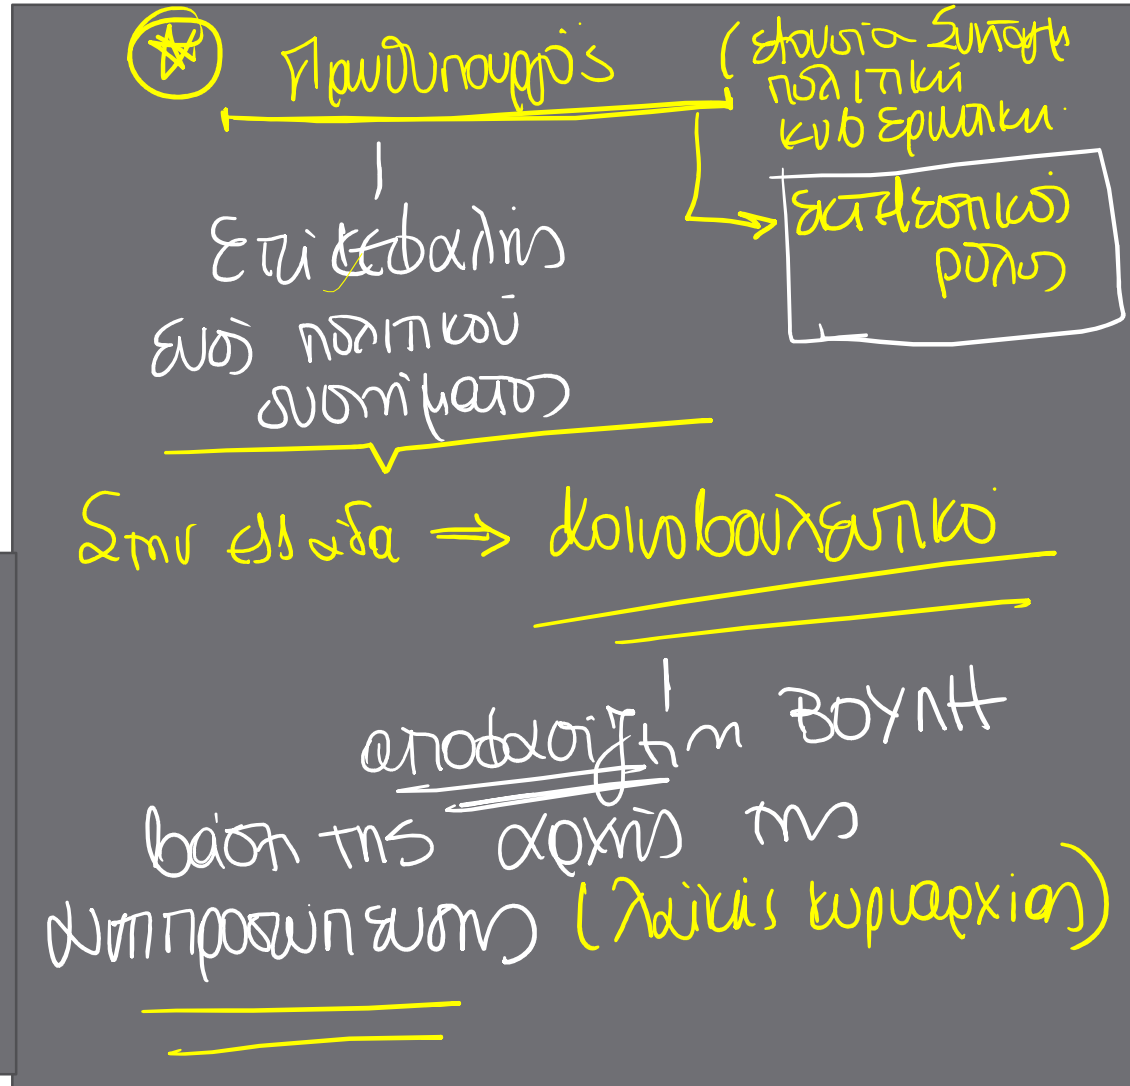 Πρωθυπουργός
(εξουσία Συνταγμ
πολιτική
κυβερνητική
εκτελεστικός
ρόλος
Επικεφαλής
ενός πολιτικού
συστήματος
Στην Ελλάδα ⇒ Κοινοβουλευτικό
αποφασίζει η ΒΟΥΛΗ
βάση της αρχής της
αντιπροσώπευσης (λαϊκής κυριαρχίας)